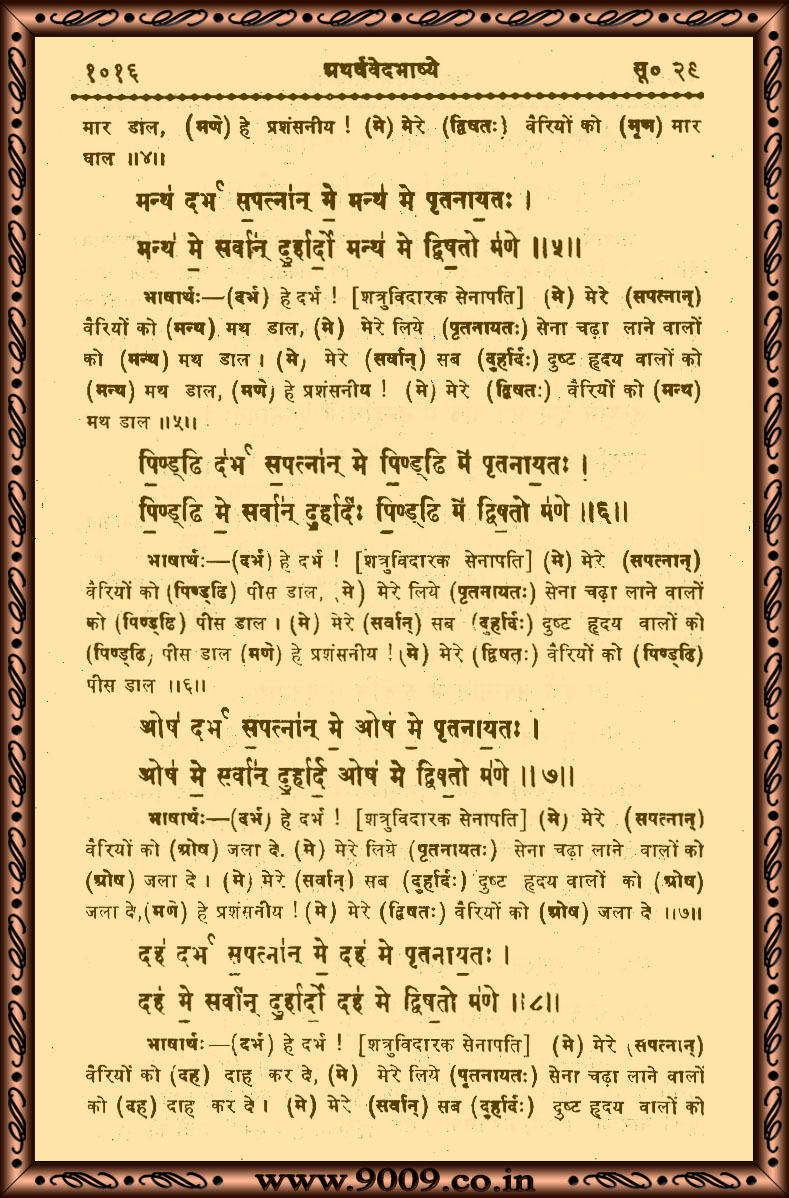 १०१६ अथर्ववेदभाष्ये सू० २९
मार डाल, (मणे) हे प्रशंसनीय ! (मे) मेरे (द्विषतः) वैरियों को (मृण) मार
डाल ॥४॥
मन्थ॑ दर्भ स॒पत्ना॑न् मे॒ मन्थ॑ मे पृतनाय॒तः ।
मन्थ॑ मे॒ सर्वा॑न् दु॒र्हार्दो॒ मन्थ॑ मे द्विष॒तो म॑णे ॥५॥
भाषार्थः—(दर्भ) हे दर्भ ! [शत्रुविदारक सेनापति] (मे) मेरे (सपत्नान्)
वैरियों को (मन्थ) मथ डाल, (मे) मेरे लिये (पृतनायतः) सेना चढ़ा लाने वालों
को (मन्थ) मथ डाल । (मे) मेरे (सर्वान्) सब (दुर्हार्दः) दुष्ट हृदय वालों को
(मन्थ) मथ डाल, (मणे) हे प्रशंसनीय ! (मे) मेरे (द्विषतः) वैरियों को (मन्थ)
मथ डाल ॥५॥
पि॒ण्ड्ढि द॑र्भ स॒पत्ना॑न् मे पि॒ण्ड्ढि मे॑ पृतनाय॒तः ।
पि॒ण्ड्ढि मे॒ सर्वा॑न् दु॒र्हार्दः॑ पि॒ण्ड्ढि मे॑ द्विष॒तो म॑णे ॥६॥
भाषार्थः—(दर्भ) हे दर्भ ! [शत्रुविदारक सेनापति] (मे) मेरे (सपत्नान्)
वैरियों को (पिण्ड्ढि) पीस डाल, (मे) मेरे लिये (पृतनायतः) सेना चढ़ा लाने वालों
को (पिण्ड्ढि) पीस डाल । (मे) मेरे (सर्वान्) सब (दुर्हार्दः) दुष्ट हृदय वालों को
(पिण्ड्ढि) पीस डाल (मणे) हे प्रशंसनीय ! (मे) मेरे (द्विषतः) वैरियों को (पिण्ड्ढि)
पीस डाल ॥६॥
ओष॑ दर्भ स॒पत्ना॑न् मे॒ ओष॑ मे॒ पृतनाय॒तः ।
ओष॑ मे॒ सर्वा॑न् दु॒र्हार्द॒ ओष॑ मे॒ द्विष॒तो म॑णे ॥७॥
भाषार्थः—(दर्भ) हे दर्भ ! [शत्रुविदारक सेनापति] (मे) मेरे (सपत्नान्)
वैरियों को (ओष) जला दे. (मे) मेरे लिये (पृतनायतः) सेना चढ़ा लाने वालों को
(ओष) जला दे । (मे) मेरे (सर्वान्) सब (दुर्हार्दः) दुष्ट हृदय वालों को (ओष)
जला दे,(मणे) हे प्रशंसनीय ! (मे) मेरे (द्विषतः) वैरियों को (ओष) जला दे ॥७॥
दह॑ दर्भ स॒पत्ना॑न् मे॒ दह॑ मे पृतनाय॒तः ।
दह॑ मे॒ सर्वा॑न् दु॒र्हार्दो॒ दह॑ मे द्विष॒तो म॑णे ॥८॥
भाषार्थः—(दर्भ) हे दर्भ ! [शत्रुविदारक सेनापति] (मे) मेरे (सपत्नान्)
वैरियों को (दह) दाह कर दे, (मे) मेरे लिये (पृतनायतः) सेना चढ़ा लाने वालों
को (दह) दाह कर दे । (मे) मेरे (सर्वान्) सब (दुर्हार्दः) दुष्ट हृदय वालों को
www.9009.co.in